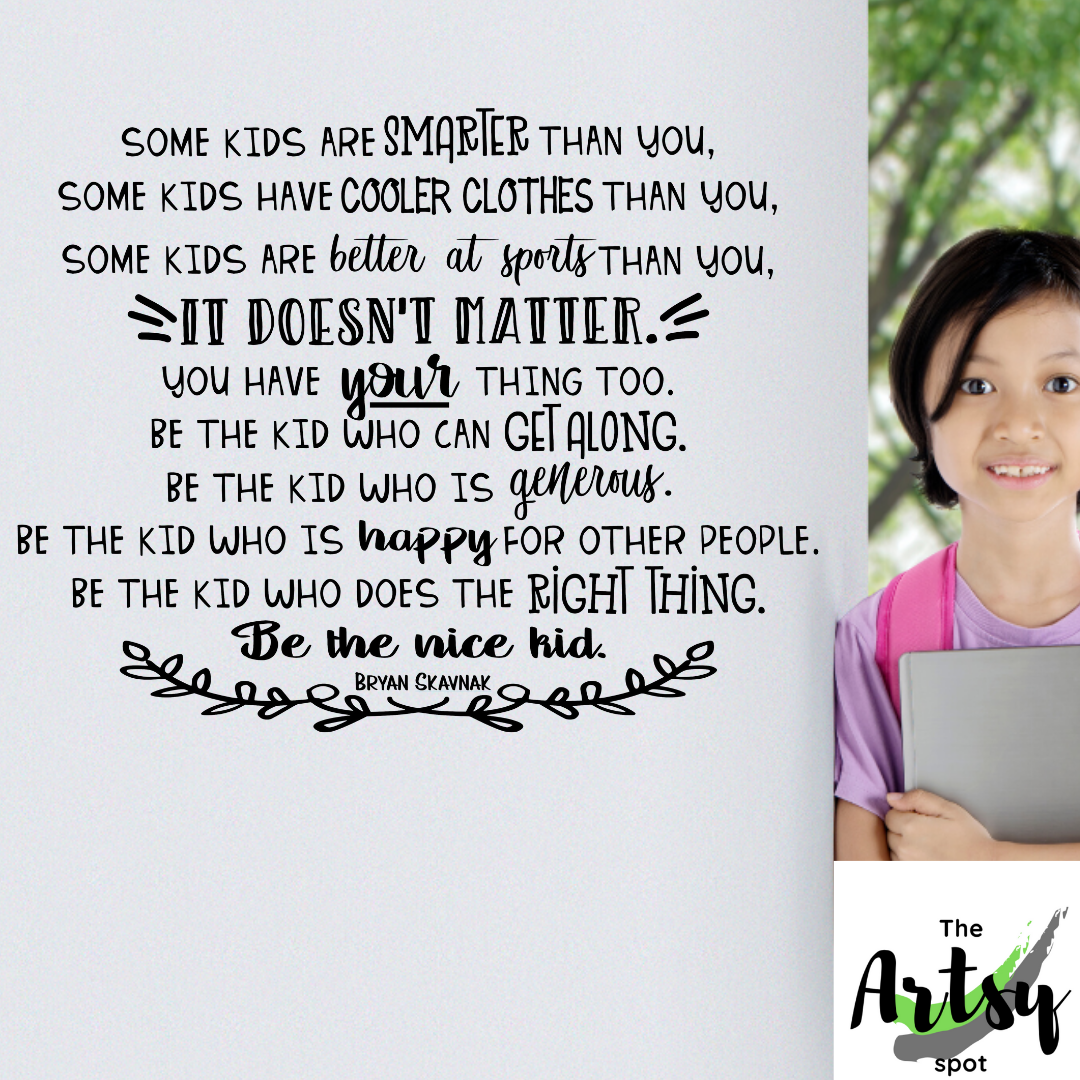 SOME KIDS ARE SMARTER THAN YOU,
SOME KIDS HAVE COOLER CLOTHES THAN YOU,
SOME KIDS ARE better at sports THAN YOU,
IT DOESN'T MATTER.
YOU HAVE your THING TOO.
BE THE KID WHO CAN GET ALONG.
BE THE KID WHO IS generous.
BE THE KID WHO IS happy FOR OTHER PEOPLE.
BE THE KID WHO DOES THE RIGHT THING.
Be the nice kid.
BRYAN SKAVNAK
The
Artsy
spot